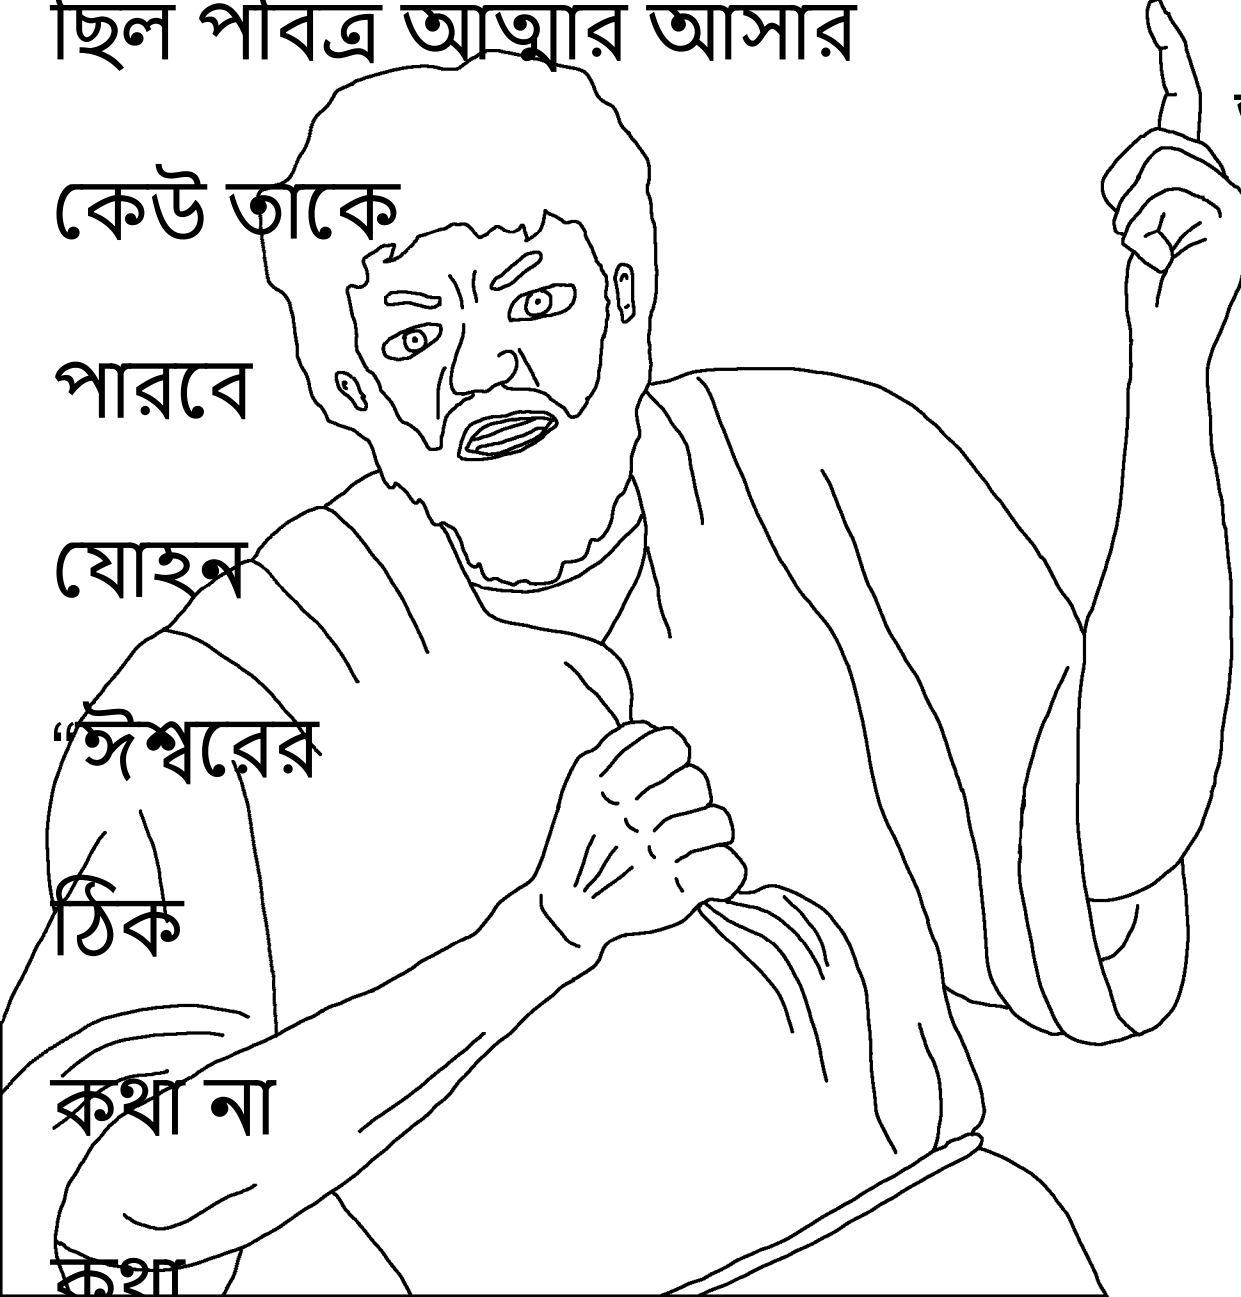 ছিল পবিত্র আত্মার আসার
কেউ তাকে
পারবে
যোহন
“ঈশ্বরের
ঠিক
কথা না
কথা